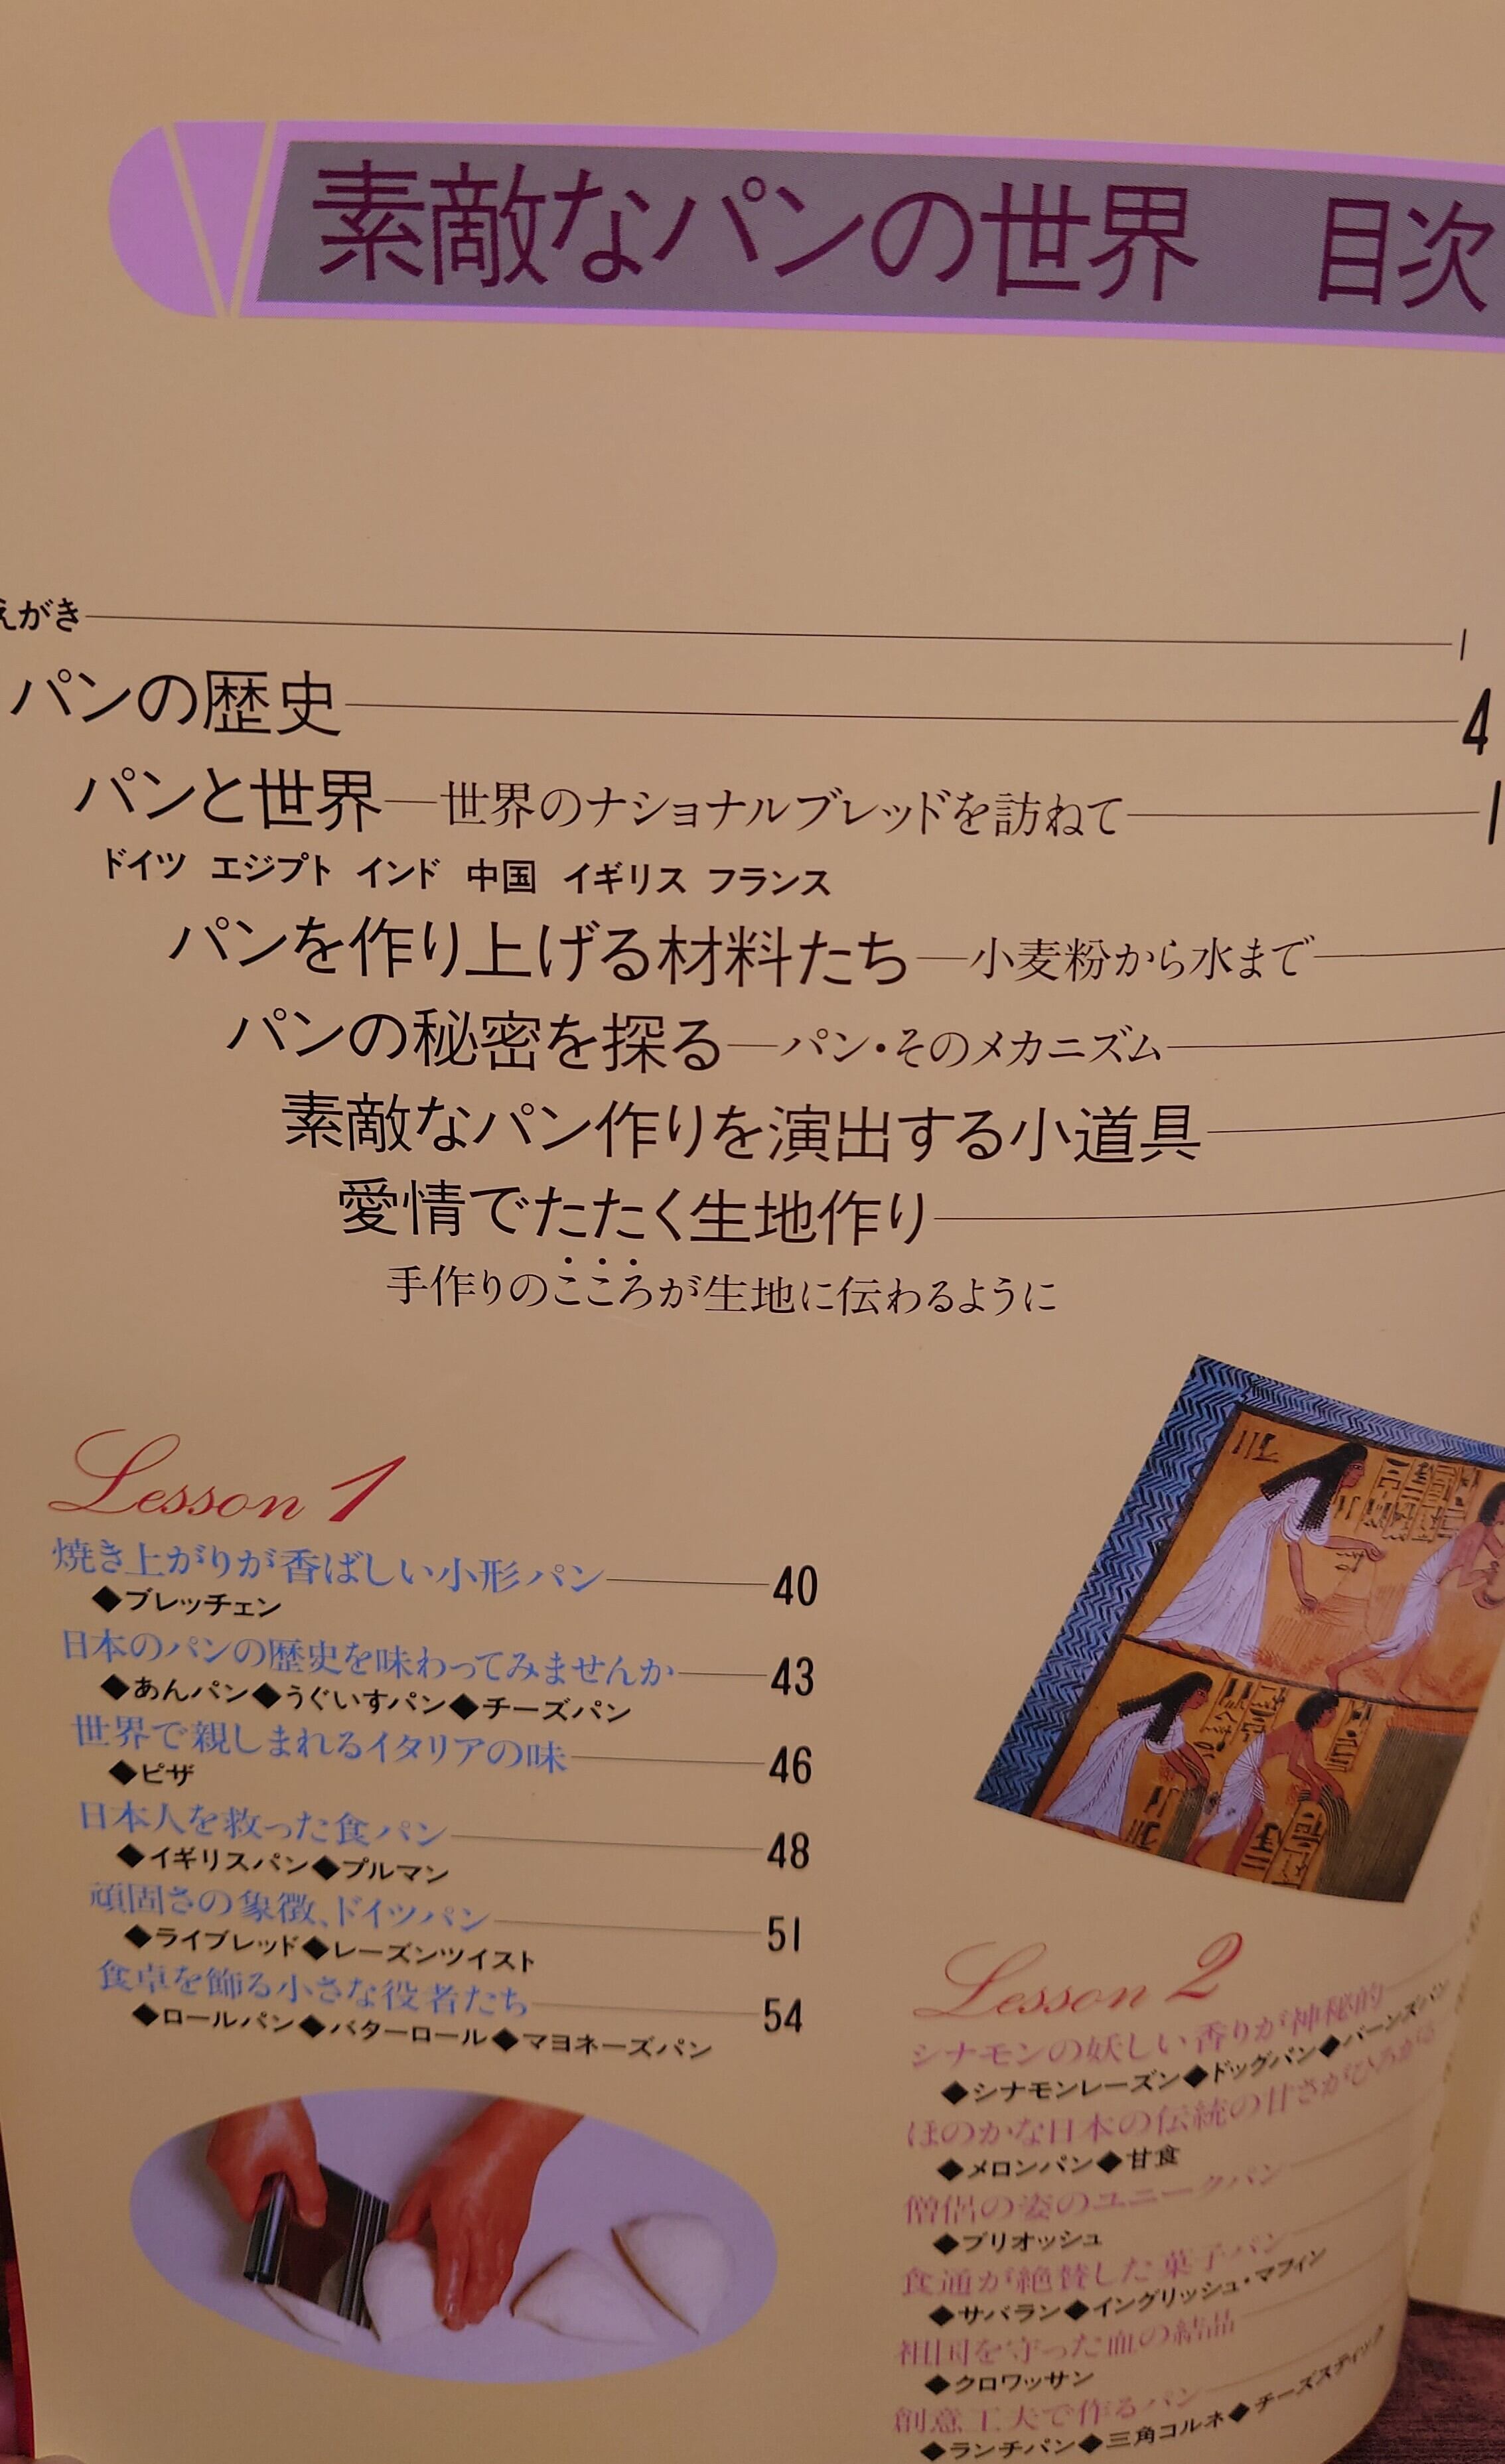 素敵なパンの世界　目次
えがき 1
パンの歴史 4
パンと世界—世界のナショナルブレッドを訪ねて 1
ドイツ エジプト インド 中国 イギリス フランス
パンを作り上げる材料たち—小麦粉から水まで
パンの秘密を探る—パン・そのメカニズム
素敵なパン作りを演出する小道具
愛情でたたく生地作り
手作りのこころが生地に伝わるように
Lesson 1
焼き上がりが香ばしい小形パン 40
◆ブレッチェン
日本のパンの歴史を味わってみませんか 43
◆あんパン◆うぐいすパン◆チーズパン
世界で親しまれるイタリアの味 46
◆ピザ
日本人を救った食パン 48
◆イギリスパン◆プルマン
頑固さの象徴、ドイツパン 51
◆ライブレッド◆レーズンツイスト
食卓を飾る小さな役者たち 54
◆ロールパン◆バターロール◆マヨネーズパン
Lesson 2
シナモンの妖しい香りが神秘的
◆シナモンレーズン◆ドッグパン◆バーンズパン
ほのかな日本の伝統の甘さがひろがる
◆メロンパン◆甘食
僧侶の姿のユニークパン
◆ブリオッシュ
食通が絶賛した菓子パン
◆サバラン◆イングリッシュ・マフィン
祖国を守った血の結晶
◆クロワッサン
創意工夫で作るパン
◆ランチパン◆三角コルネ◆チーズスティック